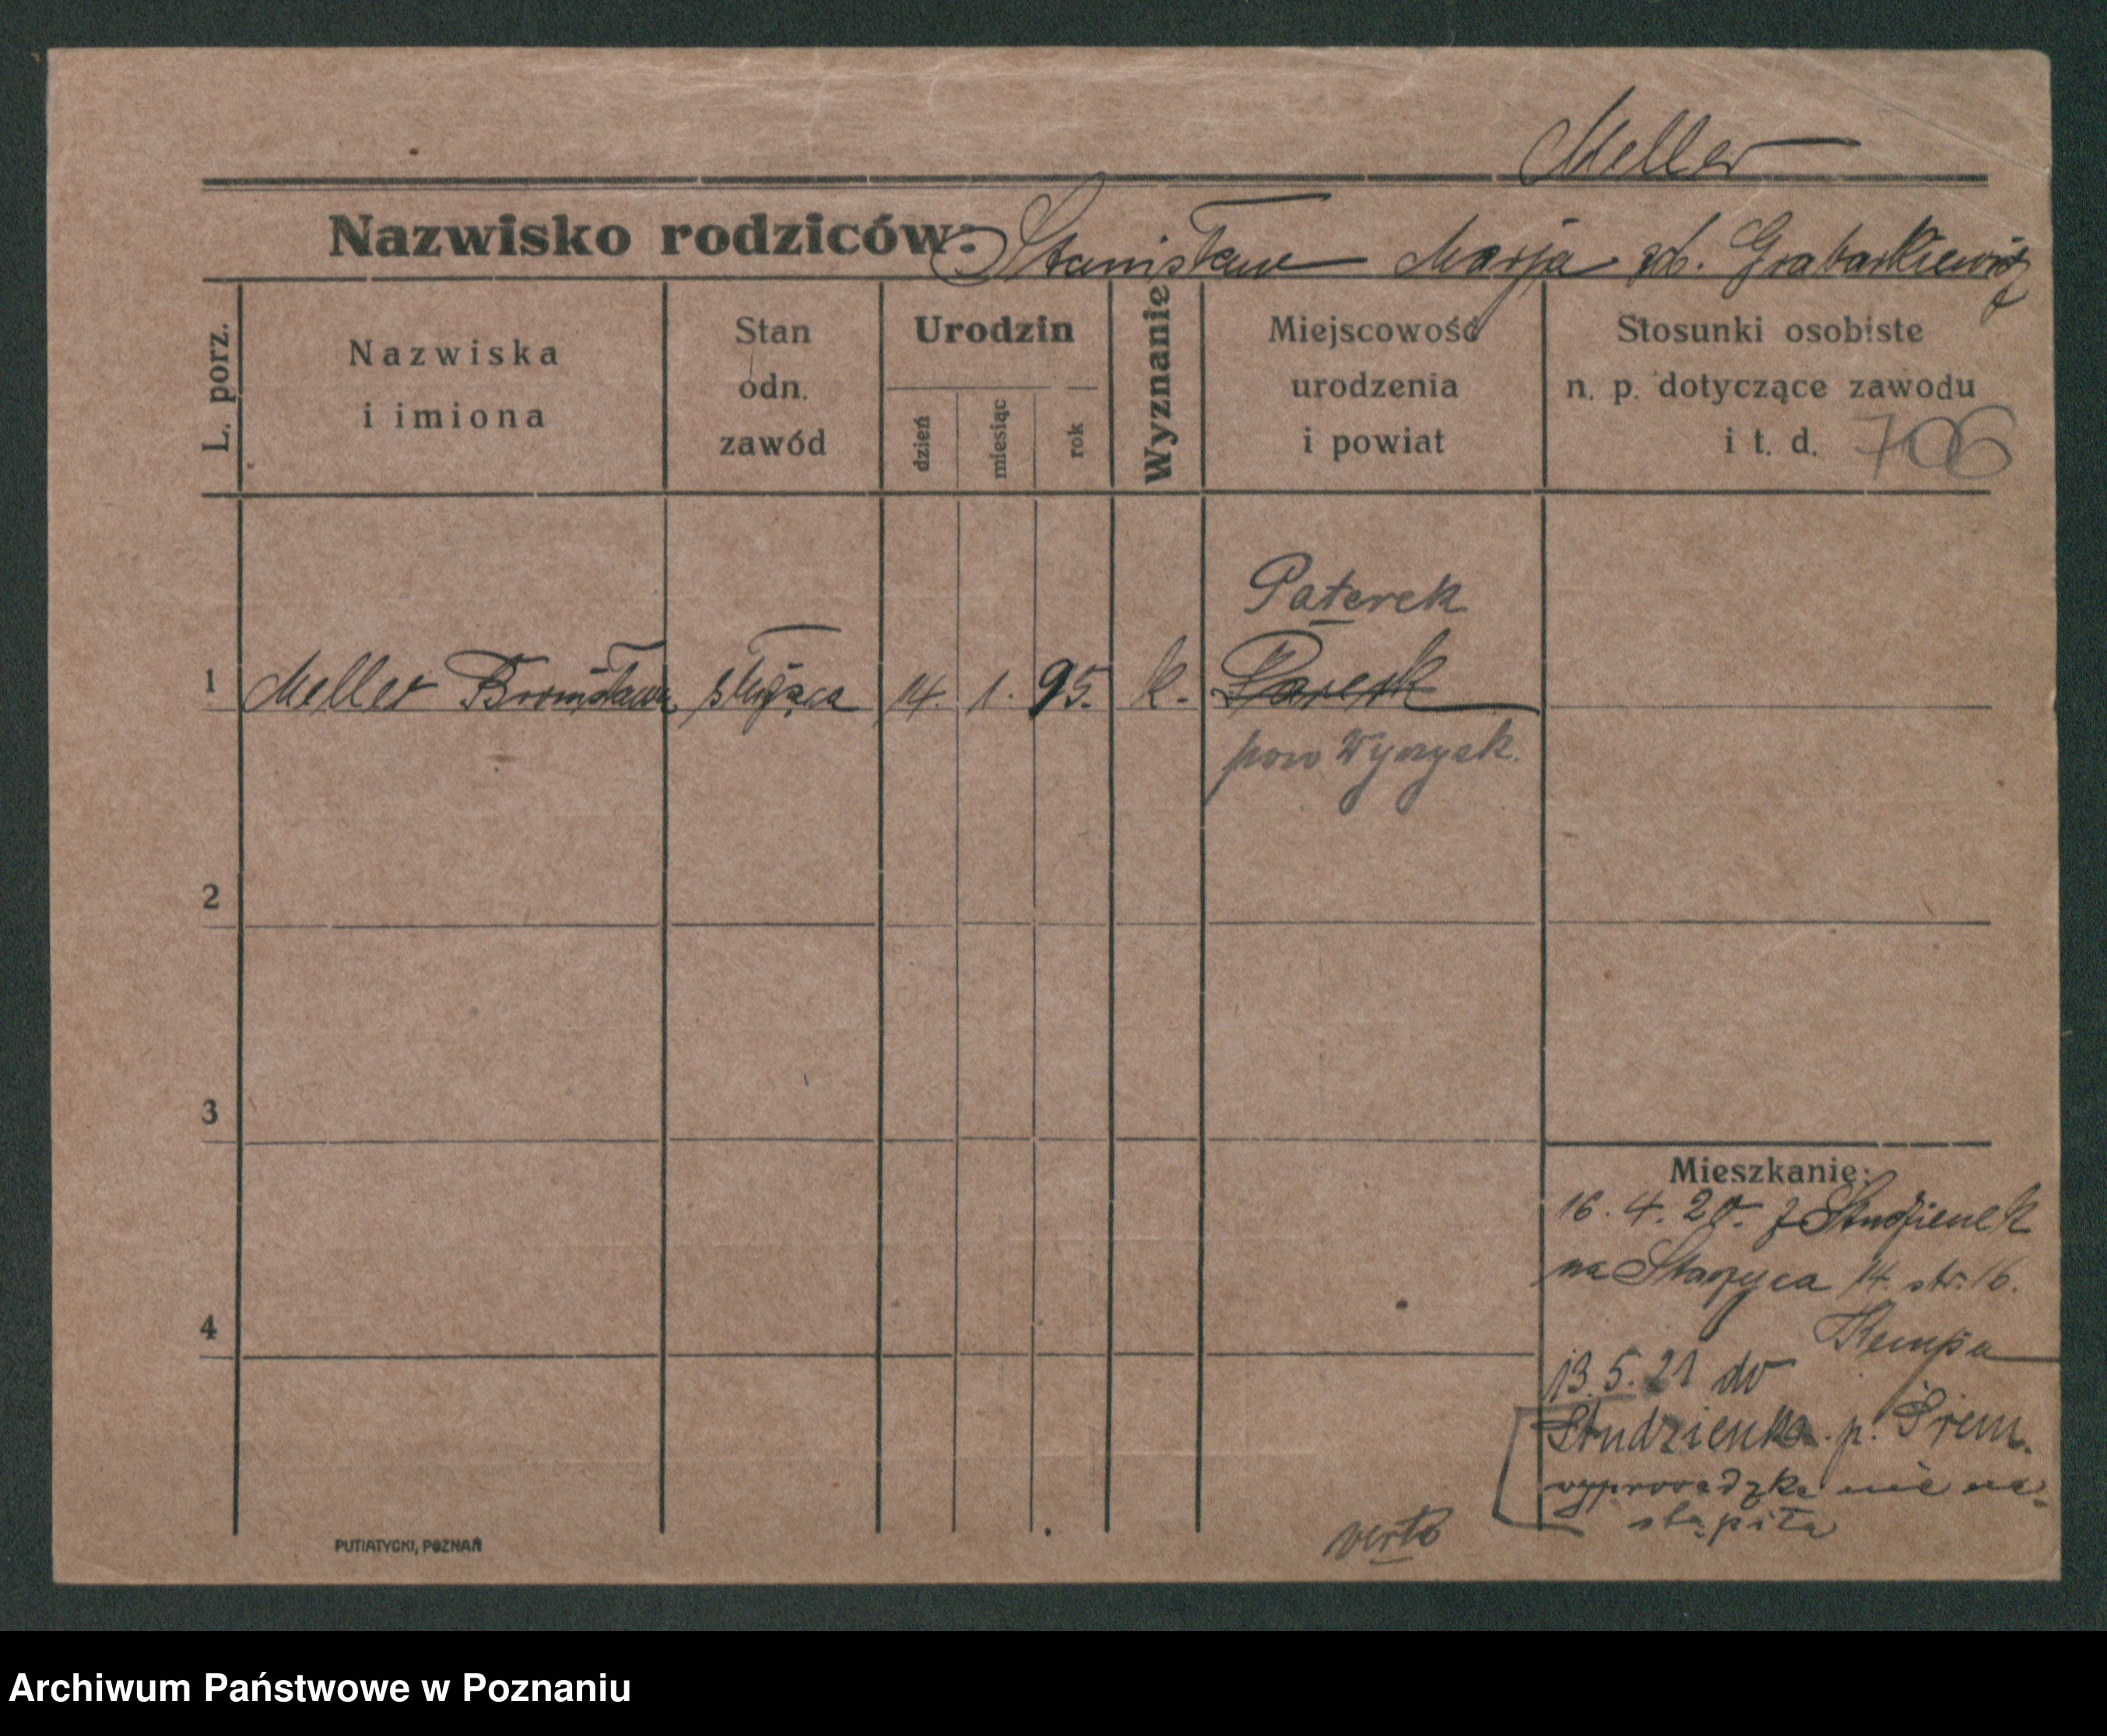 Meller
Nazwisko rodziców: Stanisław Marja zd. Grabarkiewicz
L. porz.
Nazwiska
i imiona
Stan
odn.
zawód
Urodzin
dzień
miesiąc
rok
Wyznanie
Miejscowość
urodzenia
i powiat
Stosunki osobiste
n. p. dotyczące zawodu
i t. d. 706
Paterek
1 Meller Bronisława służąca 14. 1. 95. k.
pow Wyrzysk.
2
3
4
Mieszkanie:
16. 4. 20. z Studzienek
na Staszyca 14. str. 16.
Kempa
13. 5. 21 do
Studzienka. p. Śrem.
wyprowadzka nie na-
stąpiła
verto
PUTIATYCKI, POZNAŃ
Archiwum Państwowe w Poznaniu